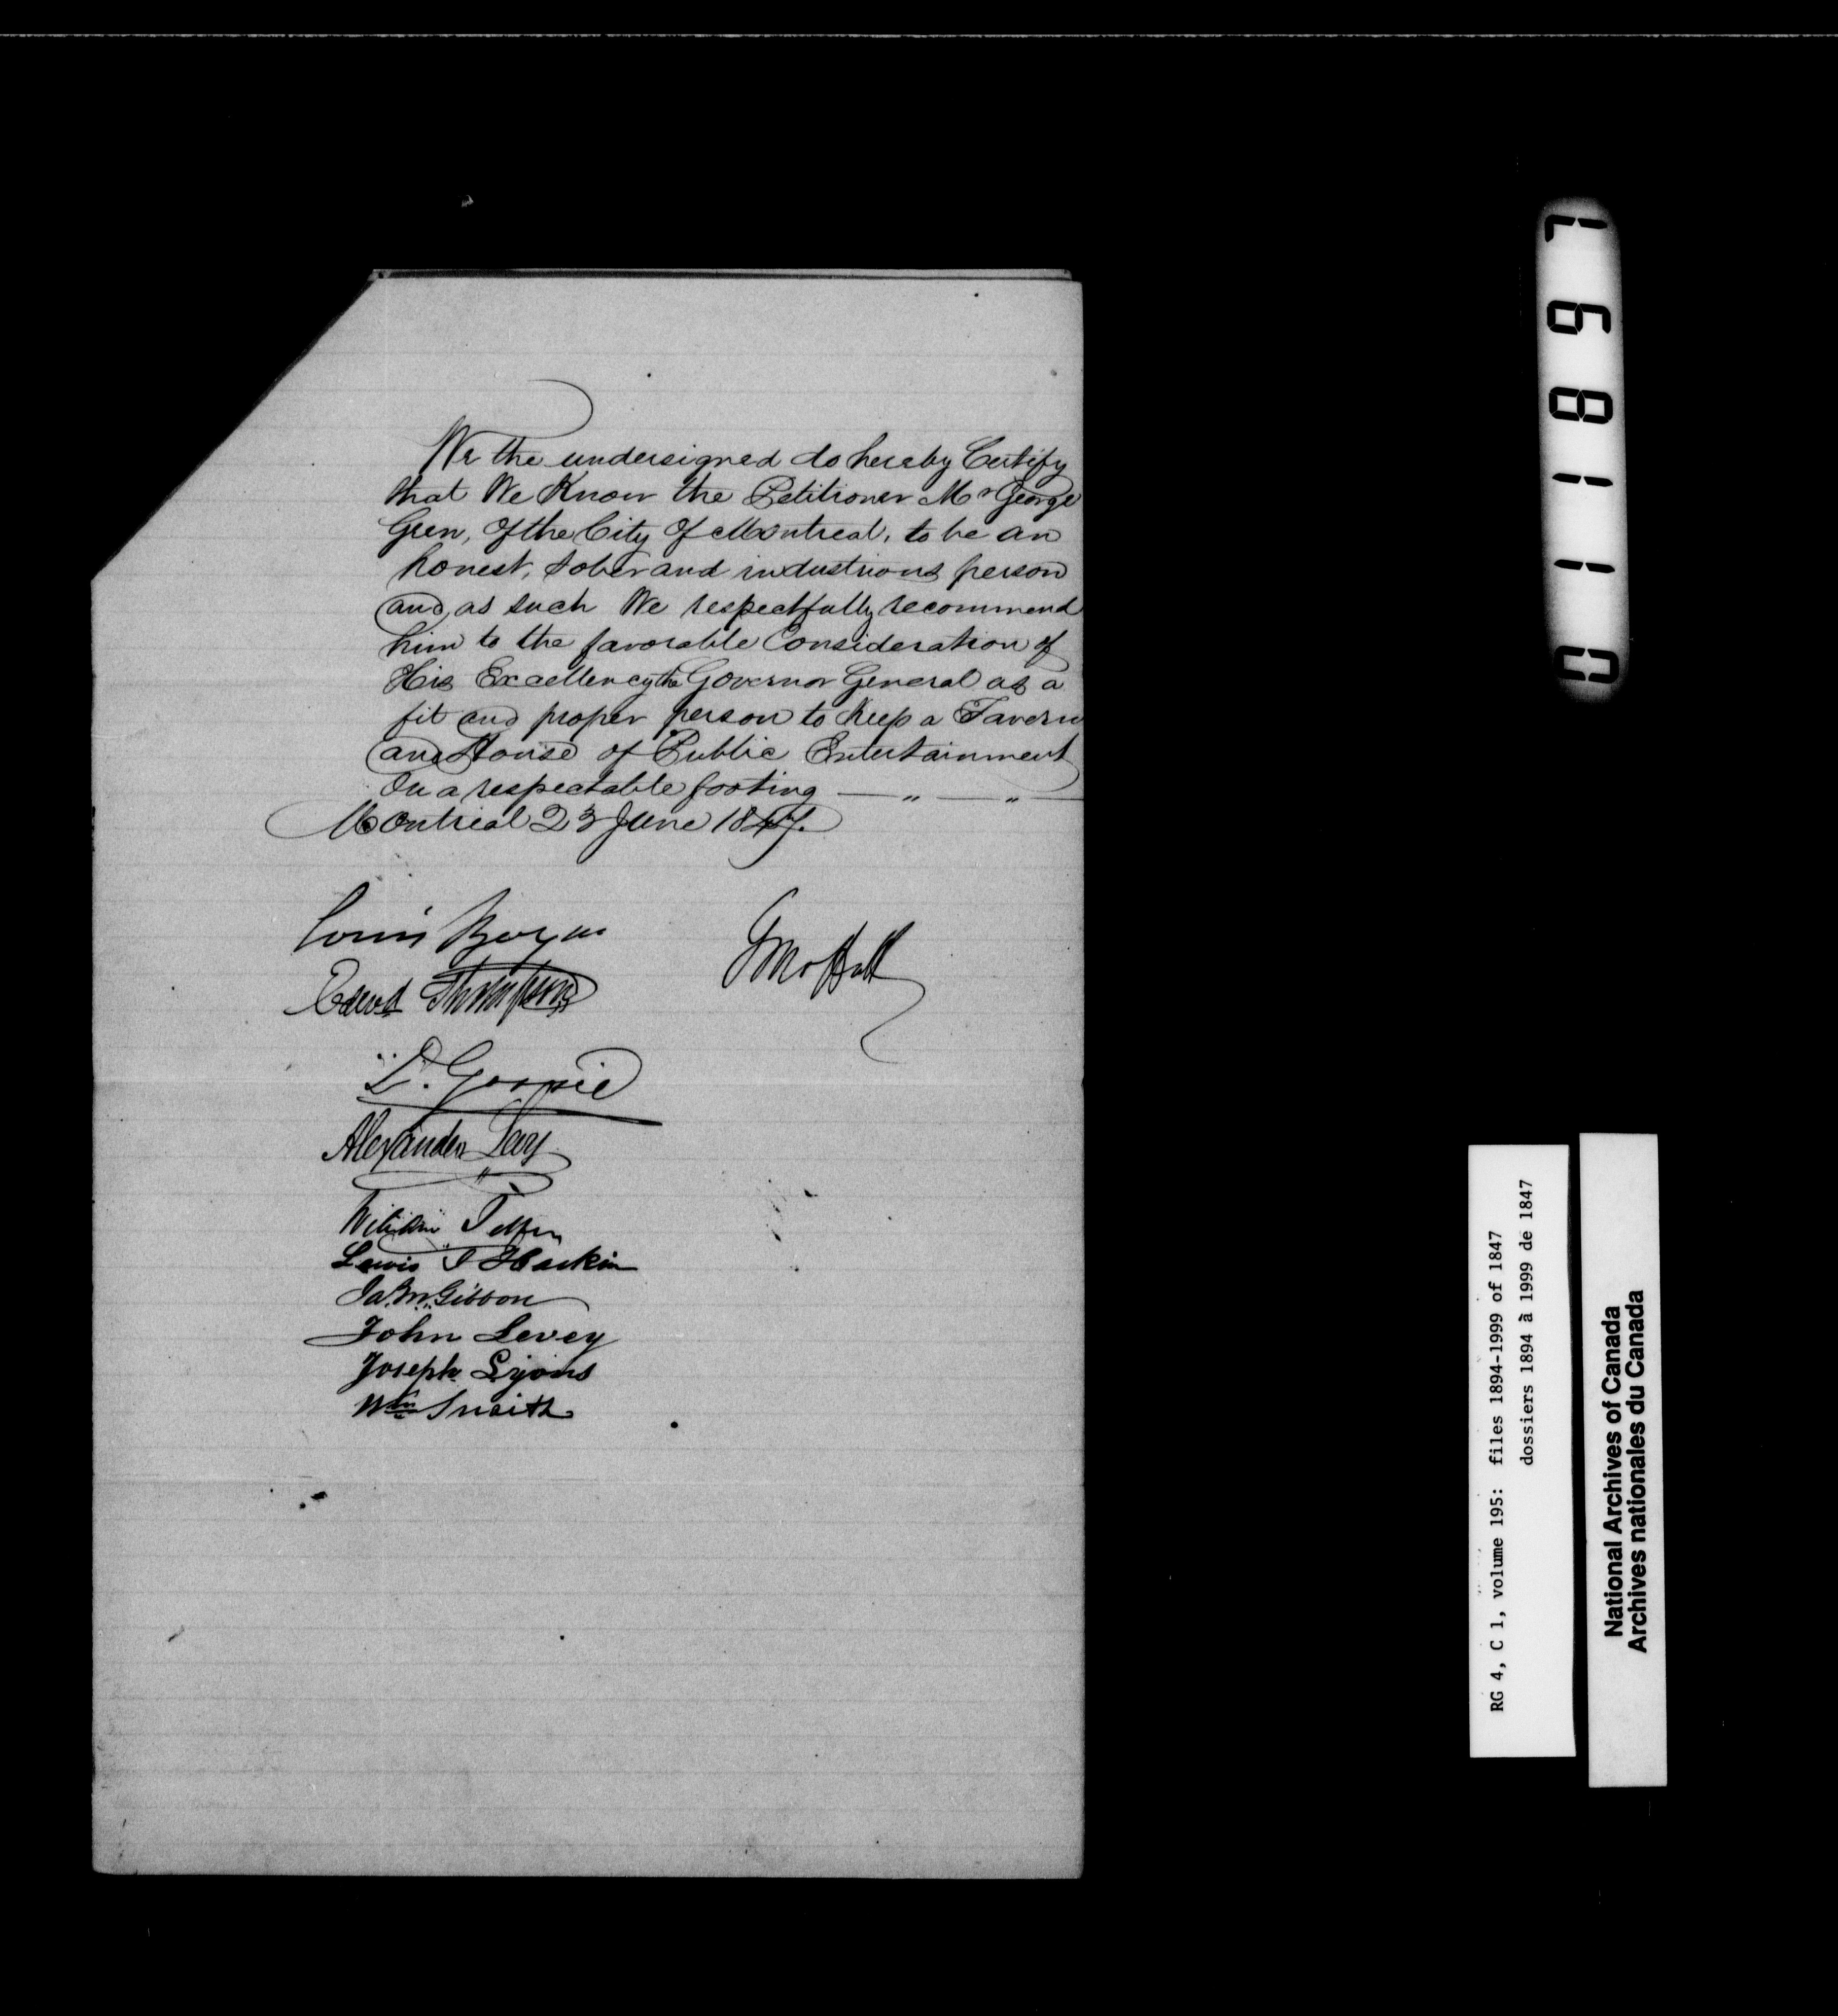 We the undersigned do hereby Certify
that We Know the Petitioner Mr George
Green, Of the City Of Montreal, to be an
honest, sober and industrious person
and as such We respectfully recommend
him to the favorable Consideration of
His Excellency the Governor General as a
fit and proper person to Keep a Tavern
and House of Public Entertainment
On a respectable footing — „ — „ —
Montreal 23 June 1847.
Louis
G Moffatt
Thompson
Alexander Levy
William
Lewis
Gibson
John Levey
Joseph Lyons
Wm Snaith
011897
RG 4, C 1, volume 195: files 1894-1999 of 1847
dossiers 1894 à 1999 de 1847
National Archives of Canada
Archives nationales du Canada